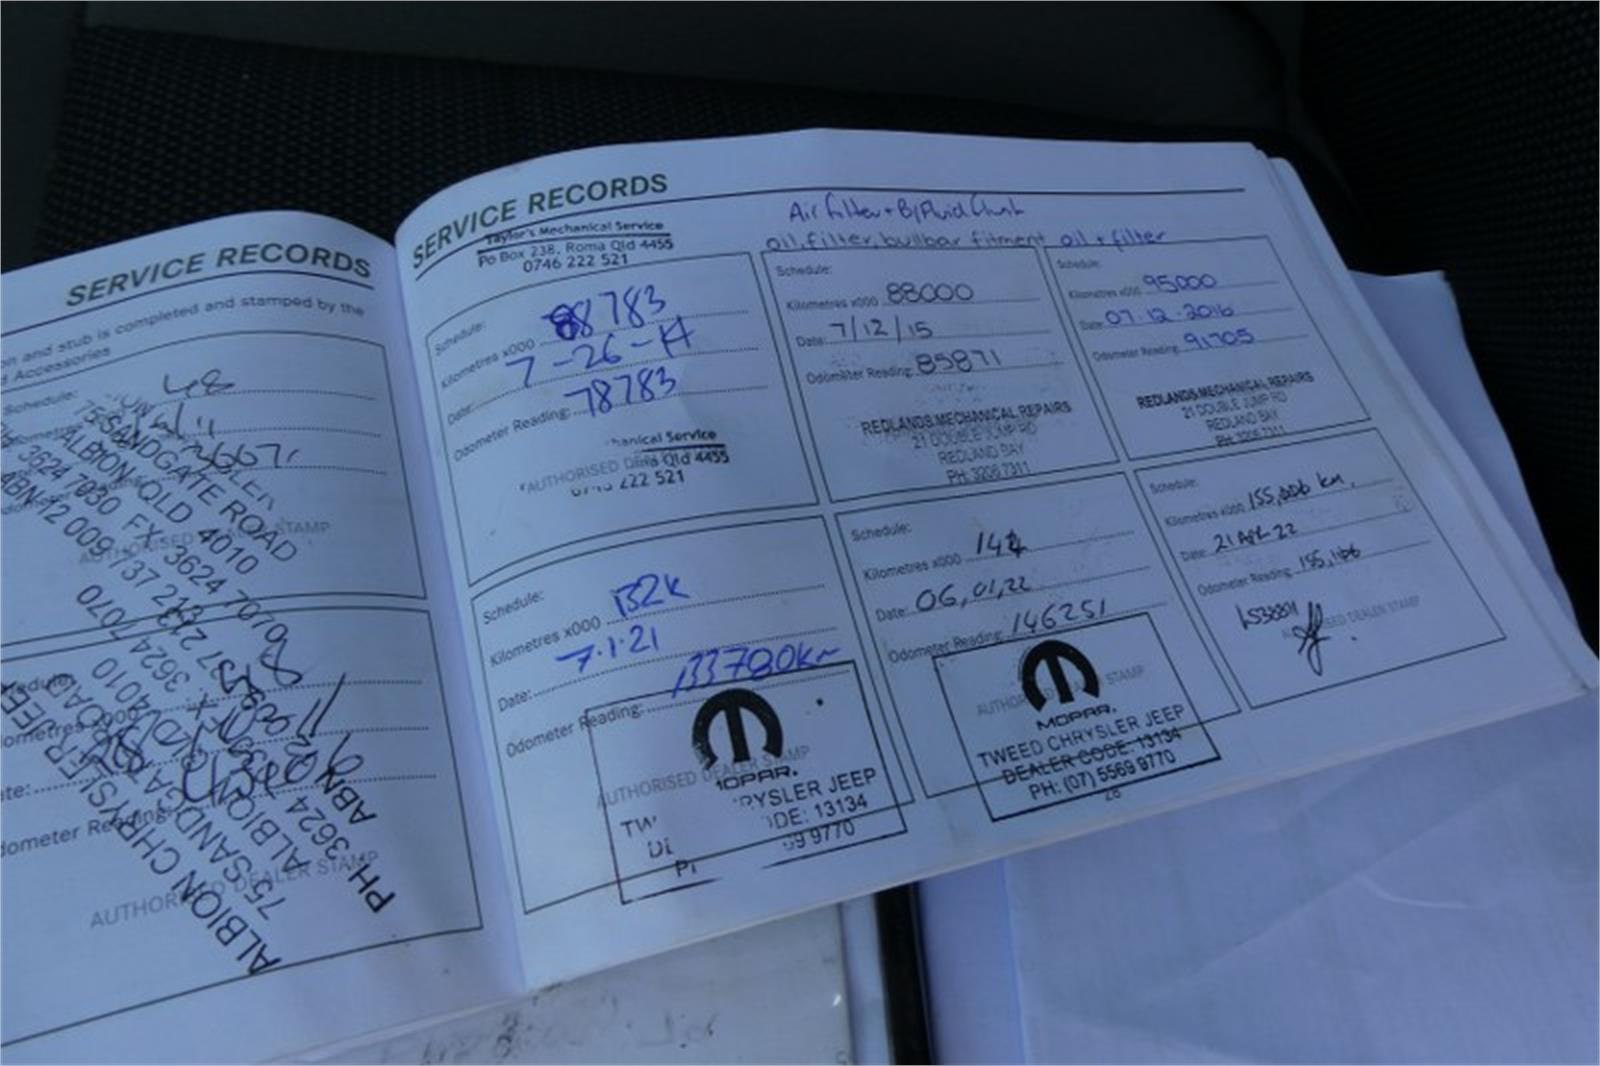 SERVICE RECORDS
on and stub is completed and stamped by the
d Accessories
Schedule: 48
75 SANDGATE ROAD
ALBION QLD 4010
3624 7030 FX: 3624 7070
ABN 12 009 737 213
STAMP
ALBION CHRYSLER JEEP
75 SANDGATE ROAD
ALBION QLD 4010
PH 3624
ABN
Odometer Reading:
AUTHORISED DEALER STAMP
SERVICE RECORDS
Taylor's Mechanical Service
Po Box 238, Roma Qld 4455
0746 222 521
Schedule:
Kilometres x000 88783
Date: 7-26-14
Odometer Reading: 78783
hanical Service
AUTHORISED
Qld 4455
222 521
Air filter + B/Fluid flush
oil, filter, bullbar fitment
Schedule:
Kilometres x000 88000
Date: 7/12/15
Odometer Reading: 85871
REDLANDS MECHANICAL REPAIRS
21 DOUBLE JUMP RD
REDLAND BAY
PH: 3206 7311
oil + filter
Schedule:
Kilometres x000 95000
Date: 07.12.2016
Odometer Reading: 91705
REDLANDS MECHANICAL REPAIRS
21 DOUBLE JUMP RD
REDLAND BAY
PH: 3206 7311
Schedule:
Kilometres x000 132k
Date: 7.1.21
Odometer Reading: 133780km
AUTHORISED DEALER STAMP
MOPAR.
RYSLER JEEP
DE: 13134
69 9770
Schedule:
Kilometres x000 144
Date: 06,01,22
Odometer Reading: 146251
STAMP
MOPAR.
TWEED CHRYSLER JEEP
DEALER CODE: 13134
PH: (07) 5569 9770
26
Schedule:
Kilometres x000 155,000 km.
Date: 21 APR 22
Odometer Reading: 155,166
DEALER STAMP